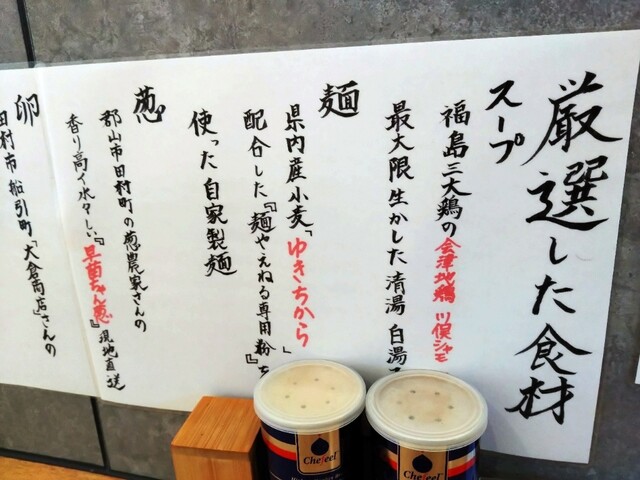 厳選した食材
スープ
福島三大鶏の会津地鶏 川俣シャモ
最大限生かした清湯 白湯
麺
県内産小麦「ゆきちから」
配合した『麺やえねる専用粉』を
使った自家製麺
葱
郡山市田村町の葱農家さんの
香り高く水々しい『旦苗ちゃん葱』現地直送
卵
田村市船引町「大倉商店」さんの
Chefeel
Chefeel